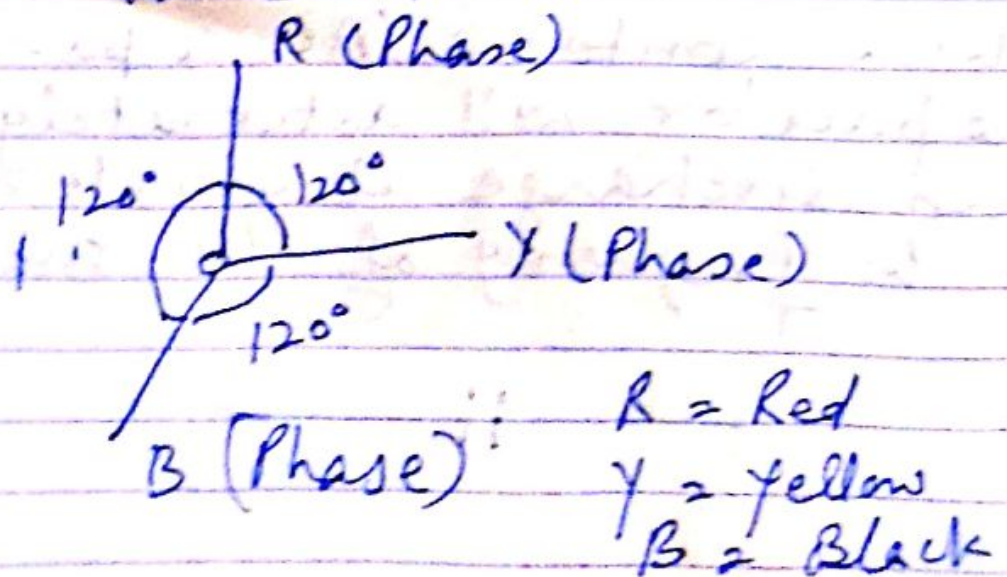 R (Phase)
120° 120°
Y (Phase)
120°
B (Phase)
R = Red
Y = Yellow
B = Black